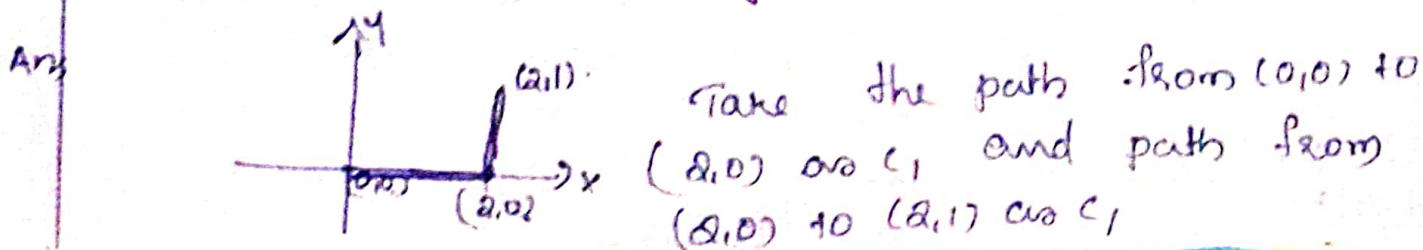 Ans
y
(2,1).
(0,0)
(2,0)
x
Take the path from (0,0) to
(2,0) as C1 and path from
(2,0) to (2,1) as C1